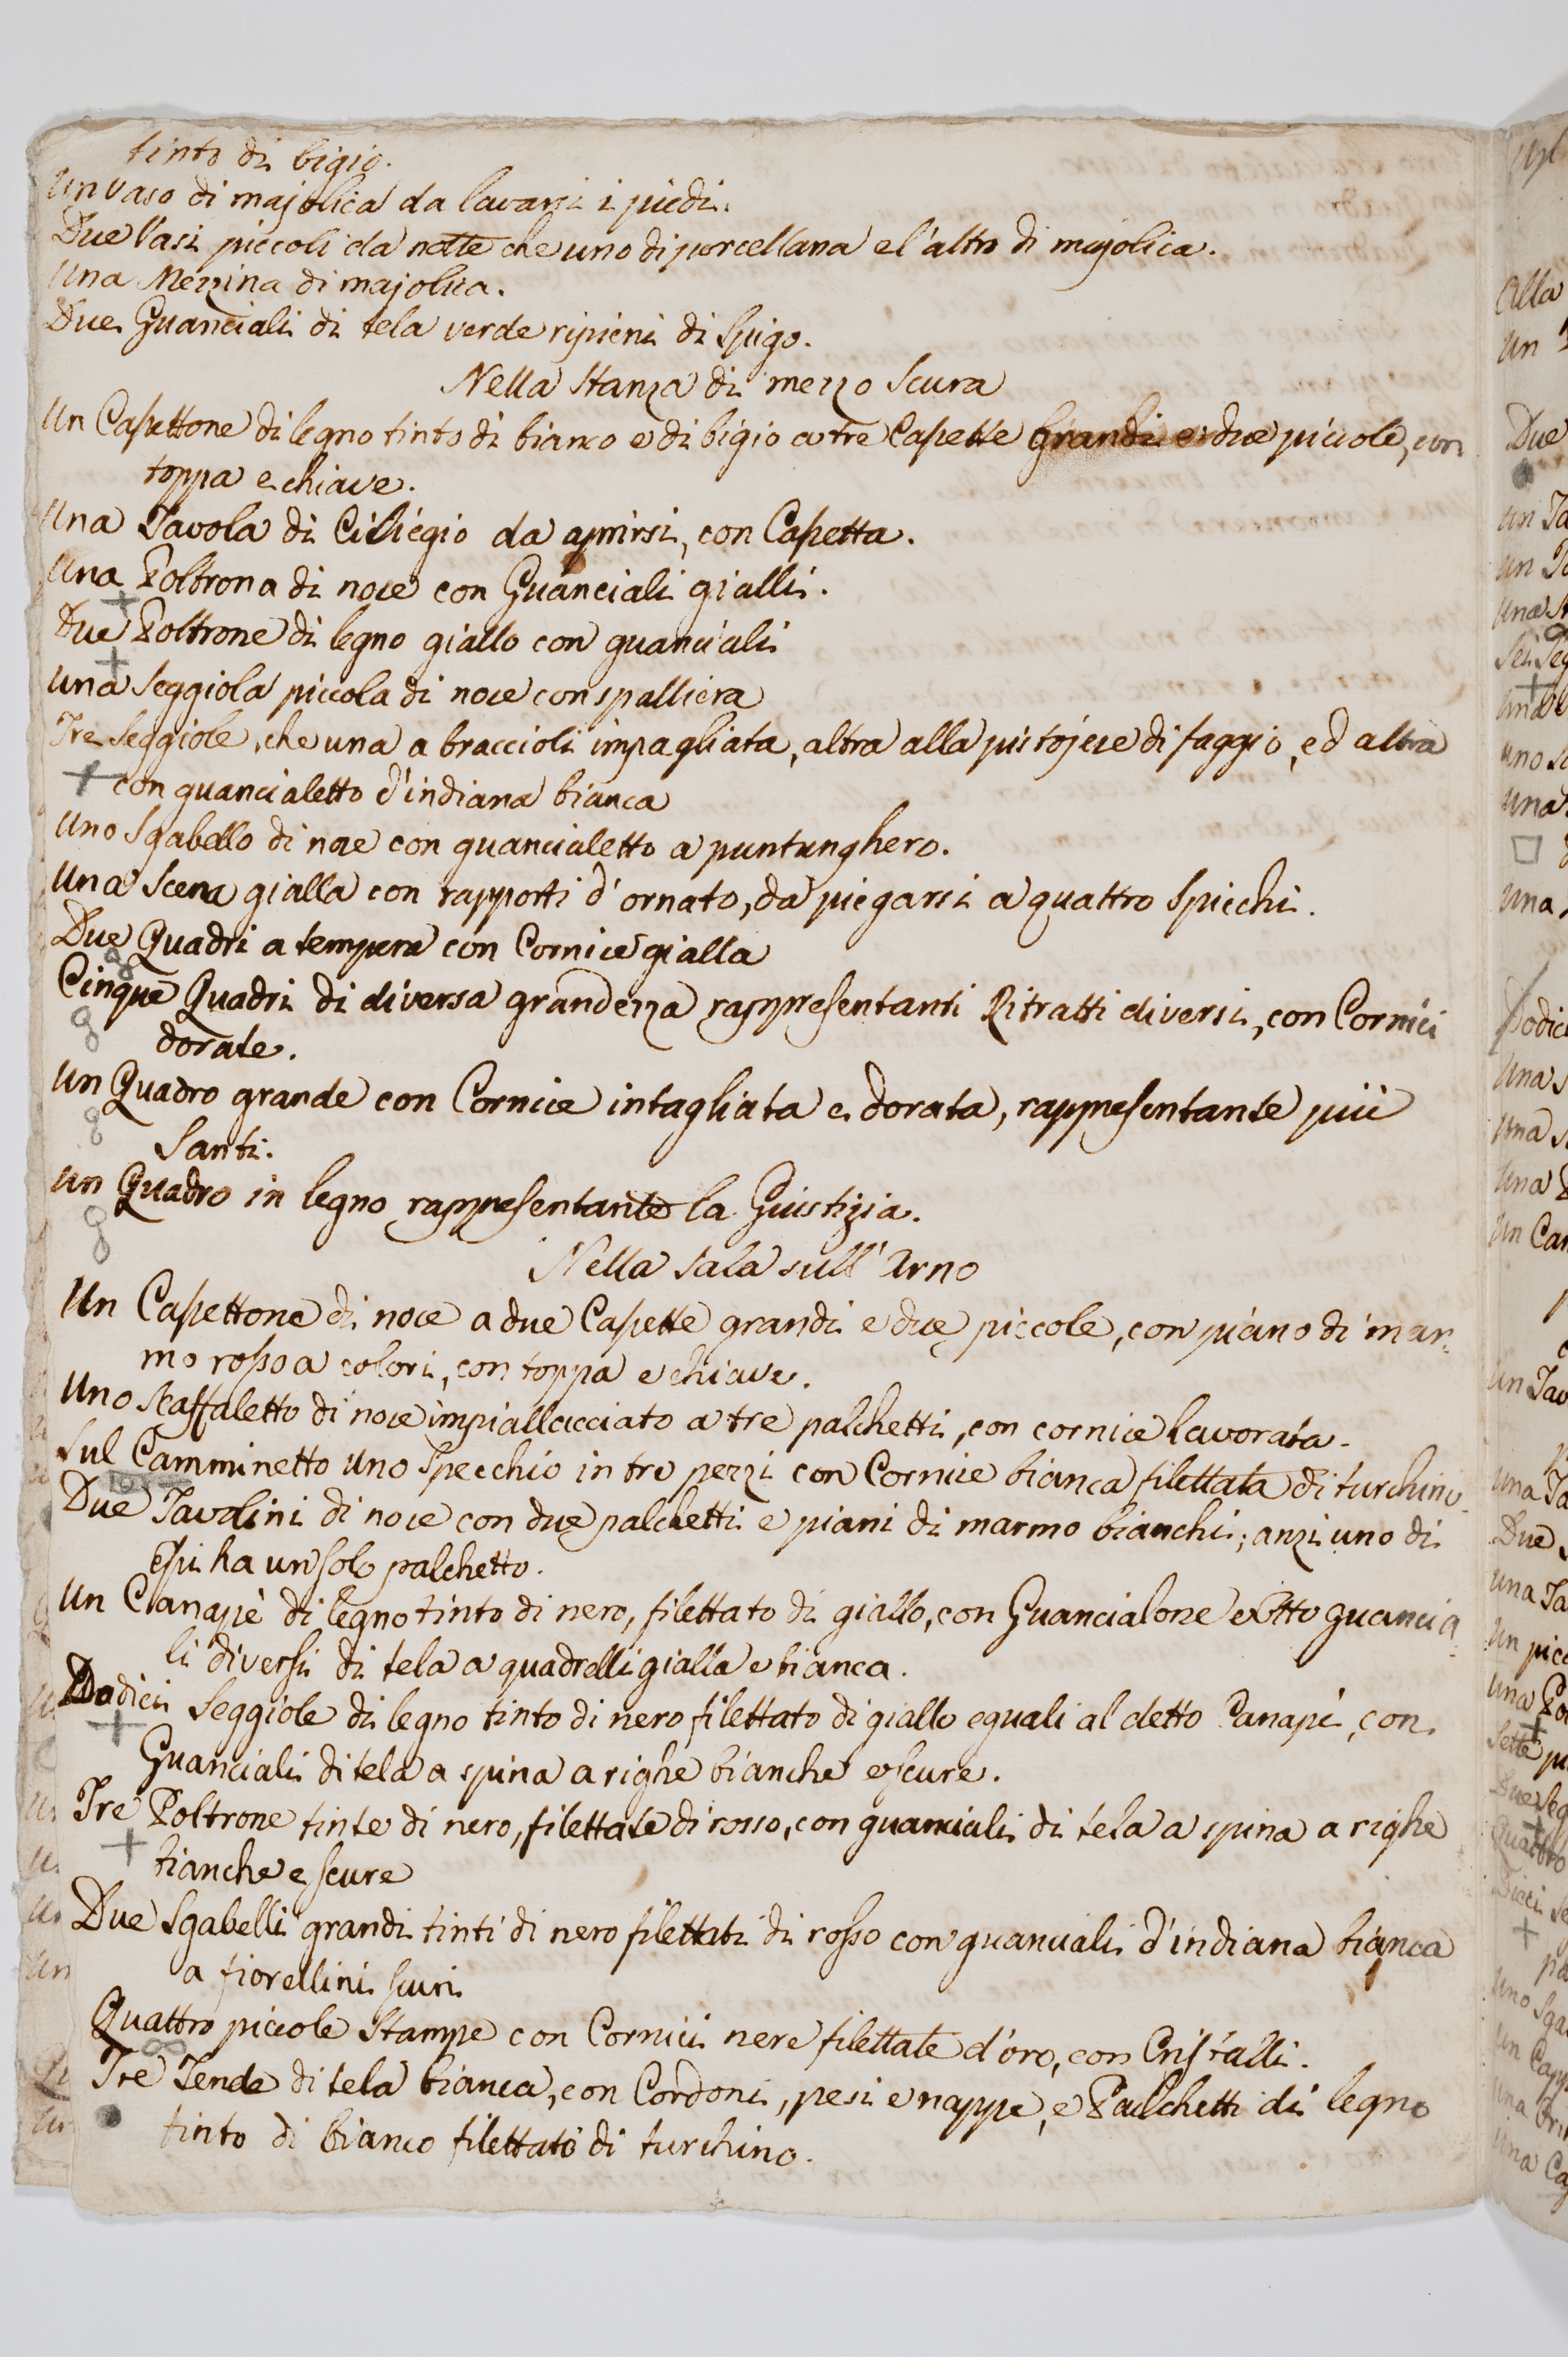 tinto di bigio.
Un Vaso di majolica da lavarsi i piedi.
Due Vasi piccoli da notte che uno di porcellana e l'altro di majolica.
Una Mezzina di majolica.
Due Guanciali di tela verde ripieni di Spigo.
Nella Stanza di mezzo Scura
Un Cassettone di legno tinto di bianco e di bigio a tre Cassette Grandi e due piccole, con
toppa e chiave.
Una Tavola di Ciliegio da aprirsi, con Cassetta.
Una Poltrona di noce con Guanciali gialli.
Due Poltrone di legno giallo con guanciali
Una Seggiola piccola di noce con spalliera
Tre Seggiole, che una a braccioli impagliata, altra alla pistojese di faggio, ed altra
con guancialetto d'indiana bianca
Uno Sgabello di noce con guancialetto a puntunghero.
Una Scena gialla con rapporti d'ornato, da piegarsi a quattro Spicchi.
Due Quadri a tempera con Cornice gialla
Cinque Quadri di diversa grandezza rappresentanti Ritratti diversi, con Cornici
dorate.
Un Quadro grande con Cornice intagliata e dorata, rappresentante più
Santi.
Un Quadro in legno rappresentante la Giustizia.
Nella Sala sull'Arno
Un Cassettone di noce a due Cassette grandi e due piccole, con piano di mar-
mo rosso a colori, con toppa e chiave.
Uno Scaffaletto di noce impiallacciato a tre palchetti, con cornice lavorata.
Sul Camminetto uno Specchio in tre pezzi con Cornice bianca filettata di turchino.
Due Tavolini di noce con due palchetti e piani di marmo bianchi; anzi uno di
essi ha un solo palchetto.
Un Canapè di legno tinto di nero, filettato di giallo, con Guancialone e Otto guancia-
li diversi di tela a quadrelli gialla e bianca.
Dodici Seggiole di legno tinto di nero filettato di giallo eguali al detto Canapè, con
Guanciali di tela a spina a righe bianche e scure.
Tre Poltrone tinte di nero, filettate di rosso, con guanciali di tela a spina a righe
bianche e scure
Due Sgabelli grandi tinti di nero filettati di rosso con guanciali d'indiana bianca
a fiorellini scuri
Quattro piccole Stampe con Cornici nere filettate d'oro, con Cristalli.
Tre Tende di tela bianca, con Cordoni, pesi e nappe, e Palchetti di legno
tinto di bianco filettato di turchino.